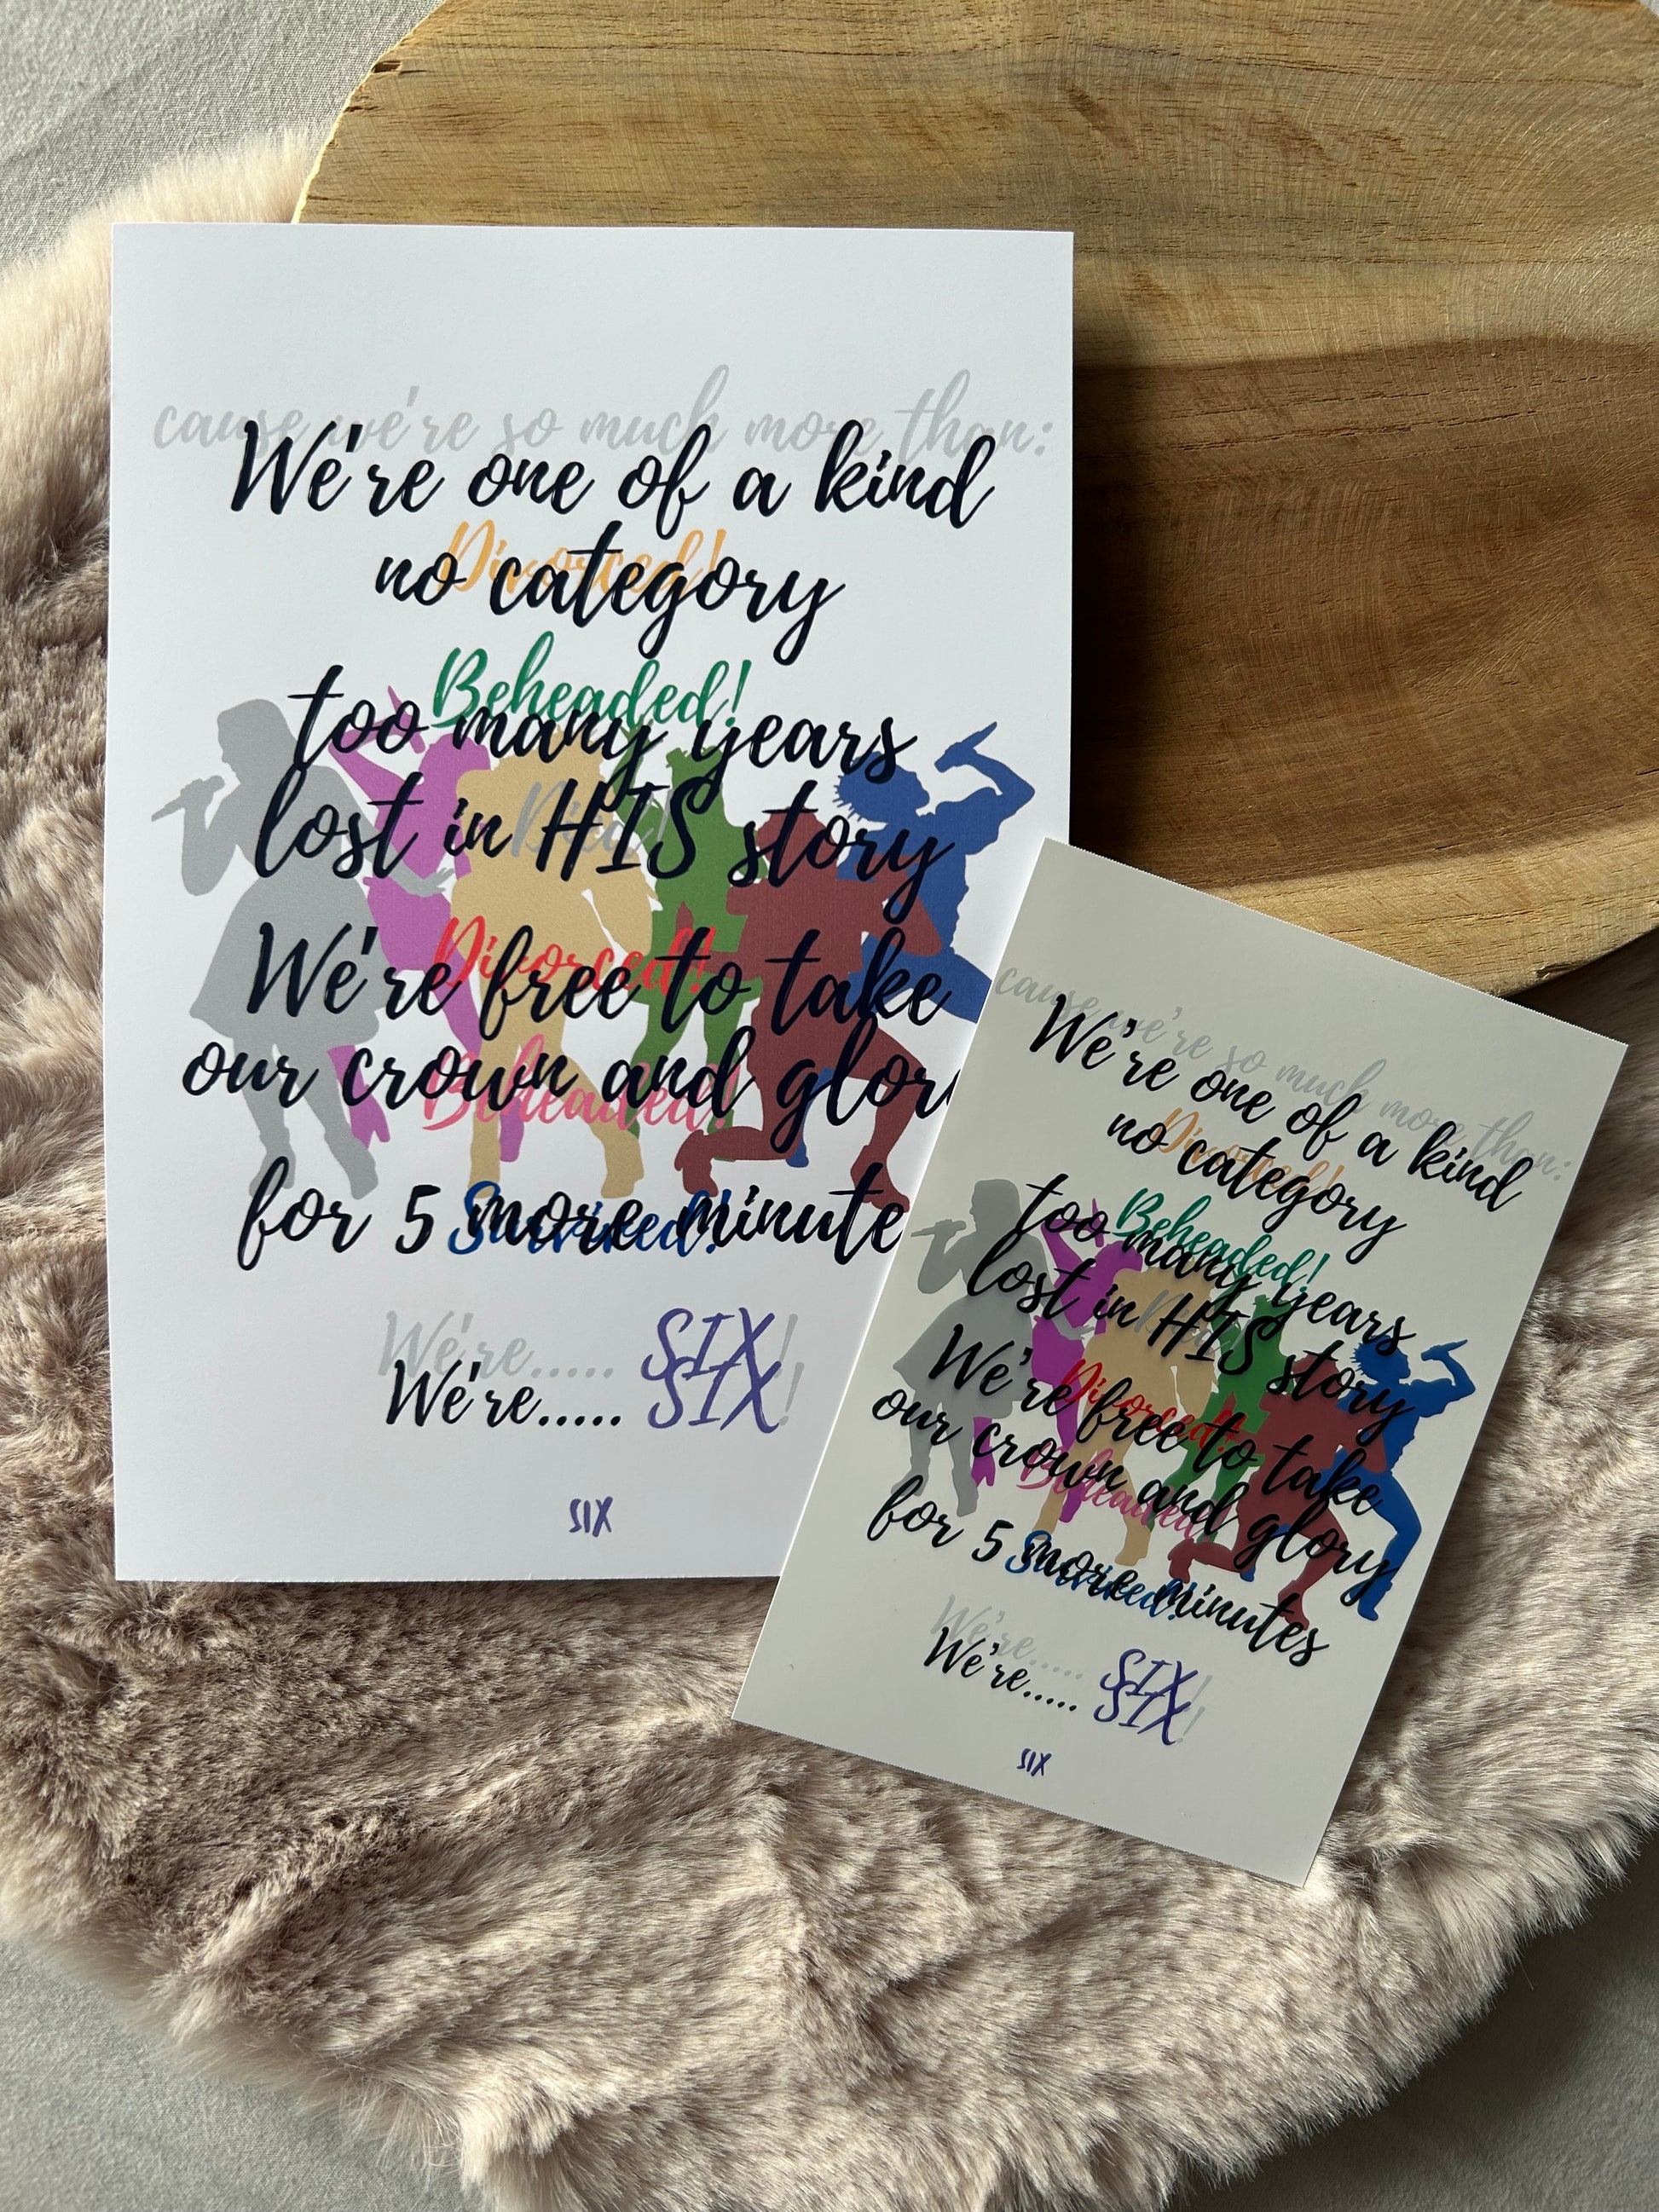 cause we're so much more than:
We're one of a kind
Divorced!
no category
Beheaded!
too many years
Died!
lost in HIS story
Divorced!
We're free to take
our crown and glor
Beheaded!
for 5 more minute
Survived!
We're..... SIX!
We're..... SIX!
SIX
cause we're so much more than:
We're one of a kind
Divorced!
no category
Beheaded!
too many years
Died!
lost in HIS story
Divorced!
We're free to take
our crown and glory
Beheaded!
for 5 more minutes
Survived!
We're..... SIX!
We're..... SIX!
SIX